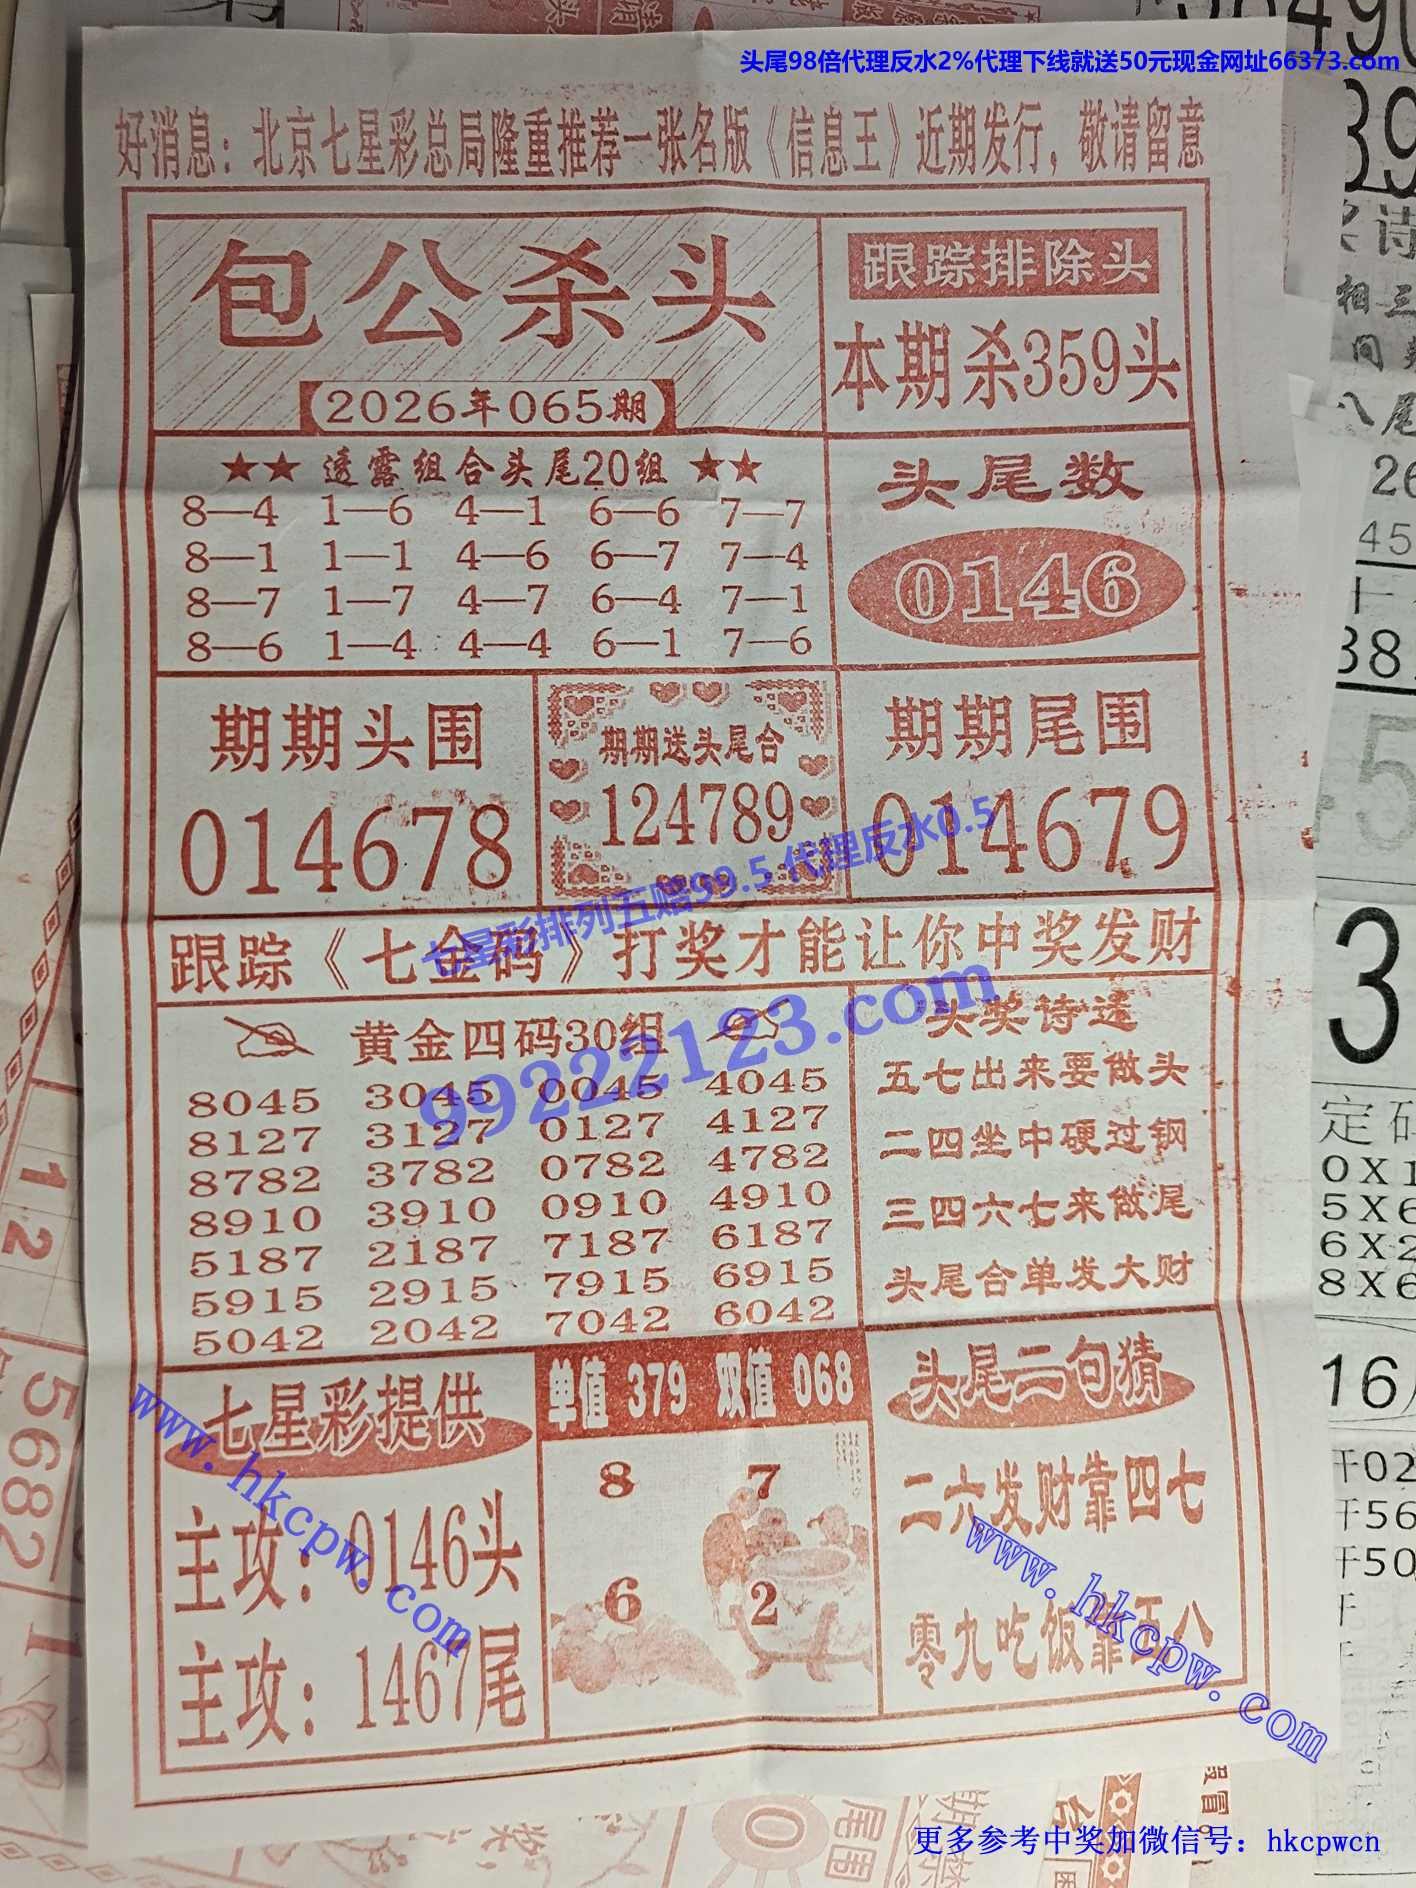 头尾98倍代理反水2%代理下线就送50元现金网址66373.com
好消息：北京七星彩总局隆重推荐一张名版《信息王》近期发行，敬请留意
包公杀头
2026年065期
跟踪排除头
本期杀359头
★★ 透露组合头尾20组 ★★
8—4 1—6 4—1 6—6 7—7
8—1 1—1 4—6 6—7 7—4
8—7 1—7 4—7 6—4 7—1
8—6 1—4 4—4 6—1 7—6
头尾数
0146
期期头围
014678
期期送头尾合
124789
期期尾围
014679
七星彩排列五赔99.5 代理反水0.5
跟踪《七金码》打奖才能让你中奖发财
99222123.com
黄金四码30组
8045 3045 0045 4045
8127 3127 0127 4127
8782 3782 0782 4782
8910 3910 0910 4910
5187 2187 7187 6187
5915 2915 7915 6915
5042 2042 7042 6042
头奖诗透
五七出来要做头
二四坐中硬过钢
三四六七来做尾
头尾合单发大财
七星彩提供
主攻：0146头
主攻：1467尾
www.hkcpw.com
单值 379 双值 068
8 7
6 2
头尾二句猜
二六发财靠四七
零九吃饭靠五八
www.hkcpw.com
更多参考中奖加微信号：hkcpwcn
12
5682
3
16
0X1
5X6
6X2
8X6
尾围
0